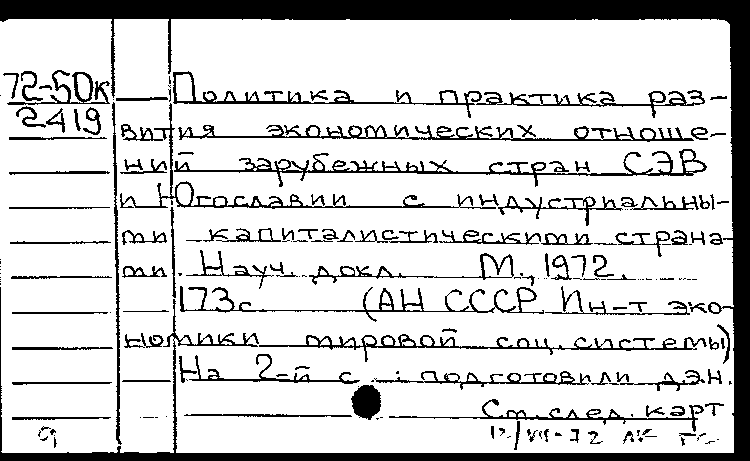 72-50к
2419
Политика и практика раз-
вития экономических отноше-
ний зарубежных стран СЭВ
и Югославии с индустриальны-
ми капиталистическими страна-
ми. Науч. докл. М., 1972.
173с. (АН СССР. Ин-т эко-
номики мировой соц. системы)
На 2-й с.: подготовили д.э.н.
См. след. карт
9
12/VII-72